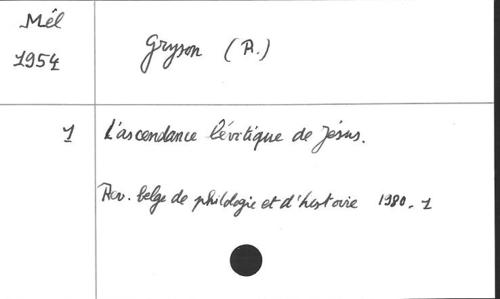 Mél
1954
Gryson (R.)
1 L'ascendance lévitique de Jésus.
Rev. belge de philologie et d'histoire 1980. 1